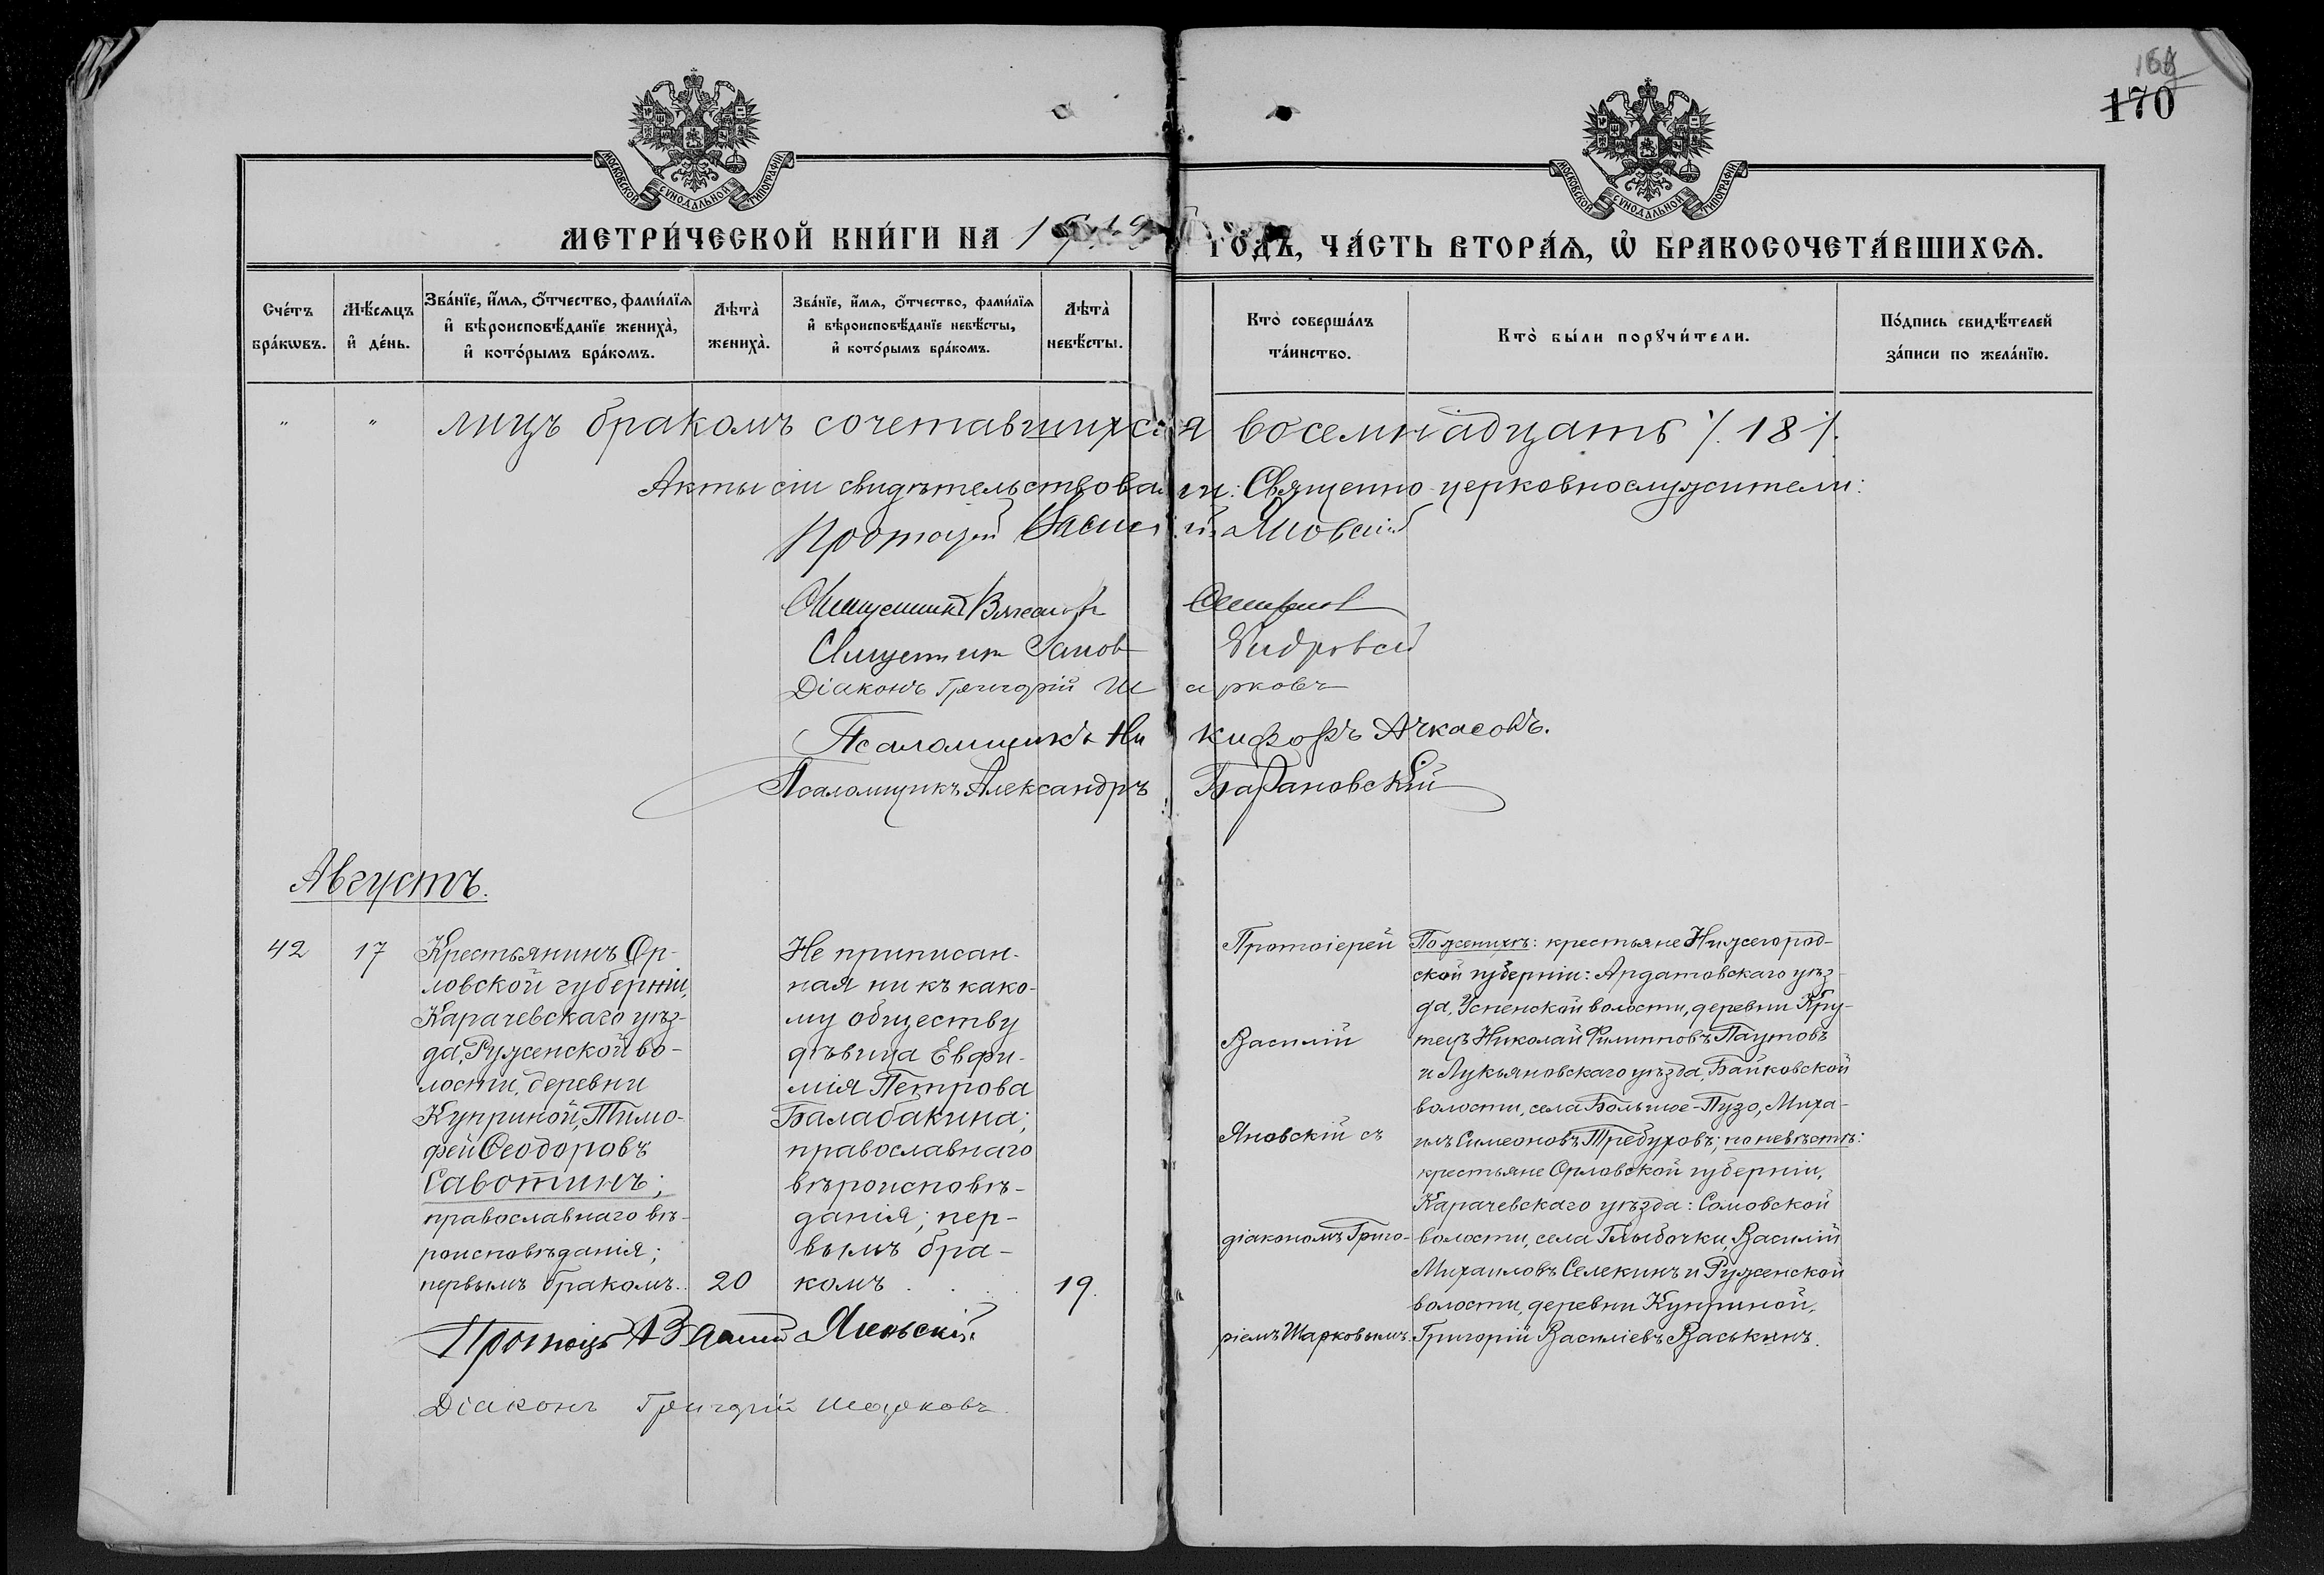 168
170
МОСКОВСКОЙ СѴНОДАЛЬНОЙ ТИПОГРАФІИ
МОСКОВСКОЙ СѴНОДАЛЬНОЙ ТИПОГРАФІИ
МЕТРИ́ЧЕСКОЙ КНИ́ГИ НА
ГО́ДЪ, ЧА́СТЬ ВТОРА́Ѧ, Ѽ БРАКОСОЧЕТА́ВШИХСѦ.
Сче́тъ
бра́кѡвъ.
Мѣ́сѧцъ
и҆ де́нь.
Зва́нїе, и҆́мѧ, ѻ҆́тчество, фами́лїѧ
и҆ вѣроисповѣ́данїе жениха̀,
и҆ кото́рымъ бра́комъ.
Лѣта̀
жениха̀.
Зва́нїе, и҆́мѧ, ѻ҆́тчество, фами́лїѧ
и҆ вѣроисповѣ́данїе невѣ́сты,
и҆ кото́рымъ бра́комъ.
Лѣта̀
невѣ́сты.
Кто̀ соверша́лъ
та́инство.
Кто̀ бы́ли порꙋчи́тели.
По́дпись свидѣ́телей
за́писи по жела́нїю.
" " лицъ бракомъ сочетавшихся восемнадцать /. 18 /.
Акты сіи свидѣтельствовали: Священно-церковнослужители:
Протоіерей Василій Яновскій
Священникъ
Священникъ
Діаконъ Григорій Шарковъ
Псаломщикъ Никифоръ Ачкасовъ.
Псаломщикъ Александръ Барановскій
Августъ.
42
17
Крестьянинъ Ор-
ловской губерніи,
Карачевскаго уѣз-
да, Руженской во-
лости, деревни
Куприной, Тимо-
фей Ѳеодоровъ
Савотинъ;
православнаго вѣ-
роисповѣданія;
первымъ бракомъ.
20
Не приписан-
ная ни къ како-
му обществу
дѣвица Евфи-
мія Петрова
Балабакина;
православнаго
вѣроисповѣ-
данія; пер-
вымъ бра-
комъ . . .
19.
Протоіерей
Василій
Яновскій съ
діакономъ Григо-
ріемъ Шарковымъ.
По женихѣ: крестьяне Нижегород-
ской губерніи: Ардатовскаго уѣз-
да, Успенской волости, деревни Кру-
тецъ Николай Филипповъ Паутовъ
и Лукьяновскаго уѣзда, Байковской
волости, села Большое-Пузо, Миха-
илъ Симеоновъ Требуховъ; по невѣстѣ:
крестьяне Орловской губерніи,
Карачевскаго уѣзда: Сомовской
волости, села Глыбочки, Василій
Михаиловъ Селекинъ и Руженской
волости, деревни Куприной,
Григорій Василіевъ Васькинъ.
Протоіерей Василій Яновскій
Діаконъ Григорій Шарковъ